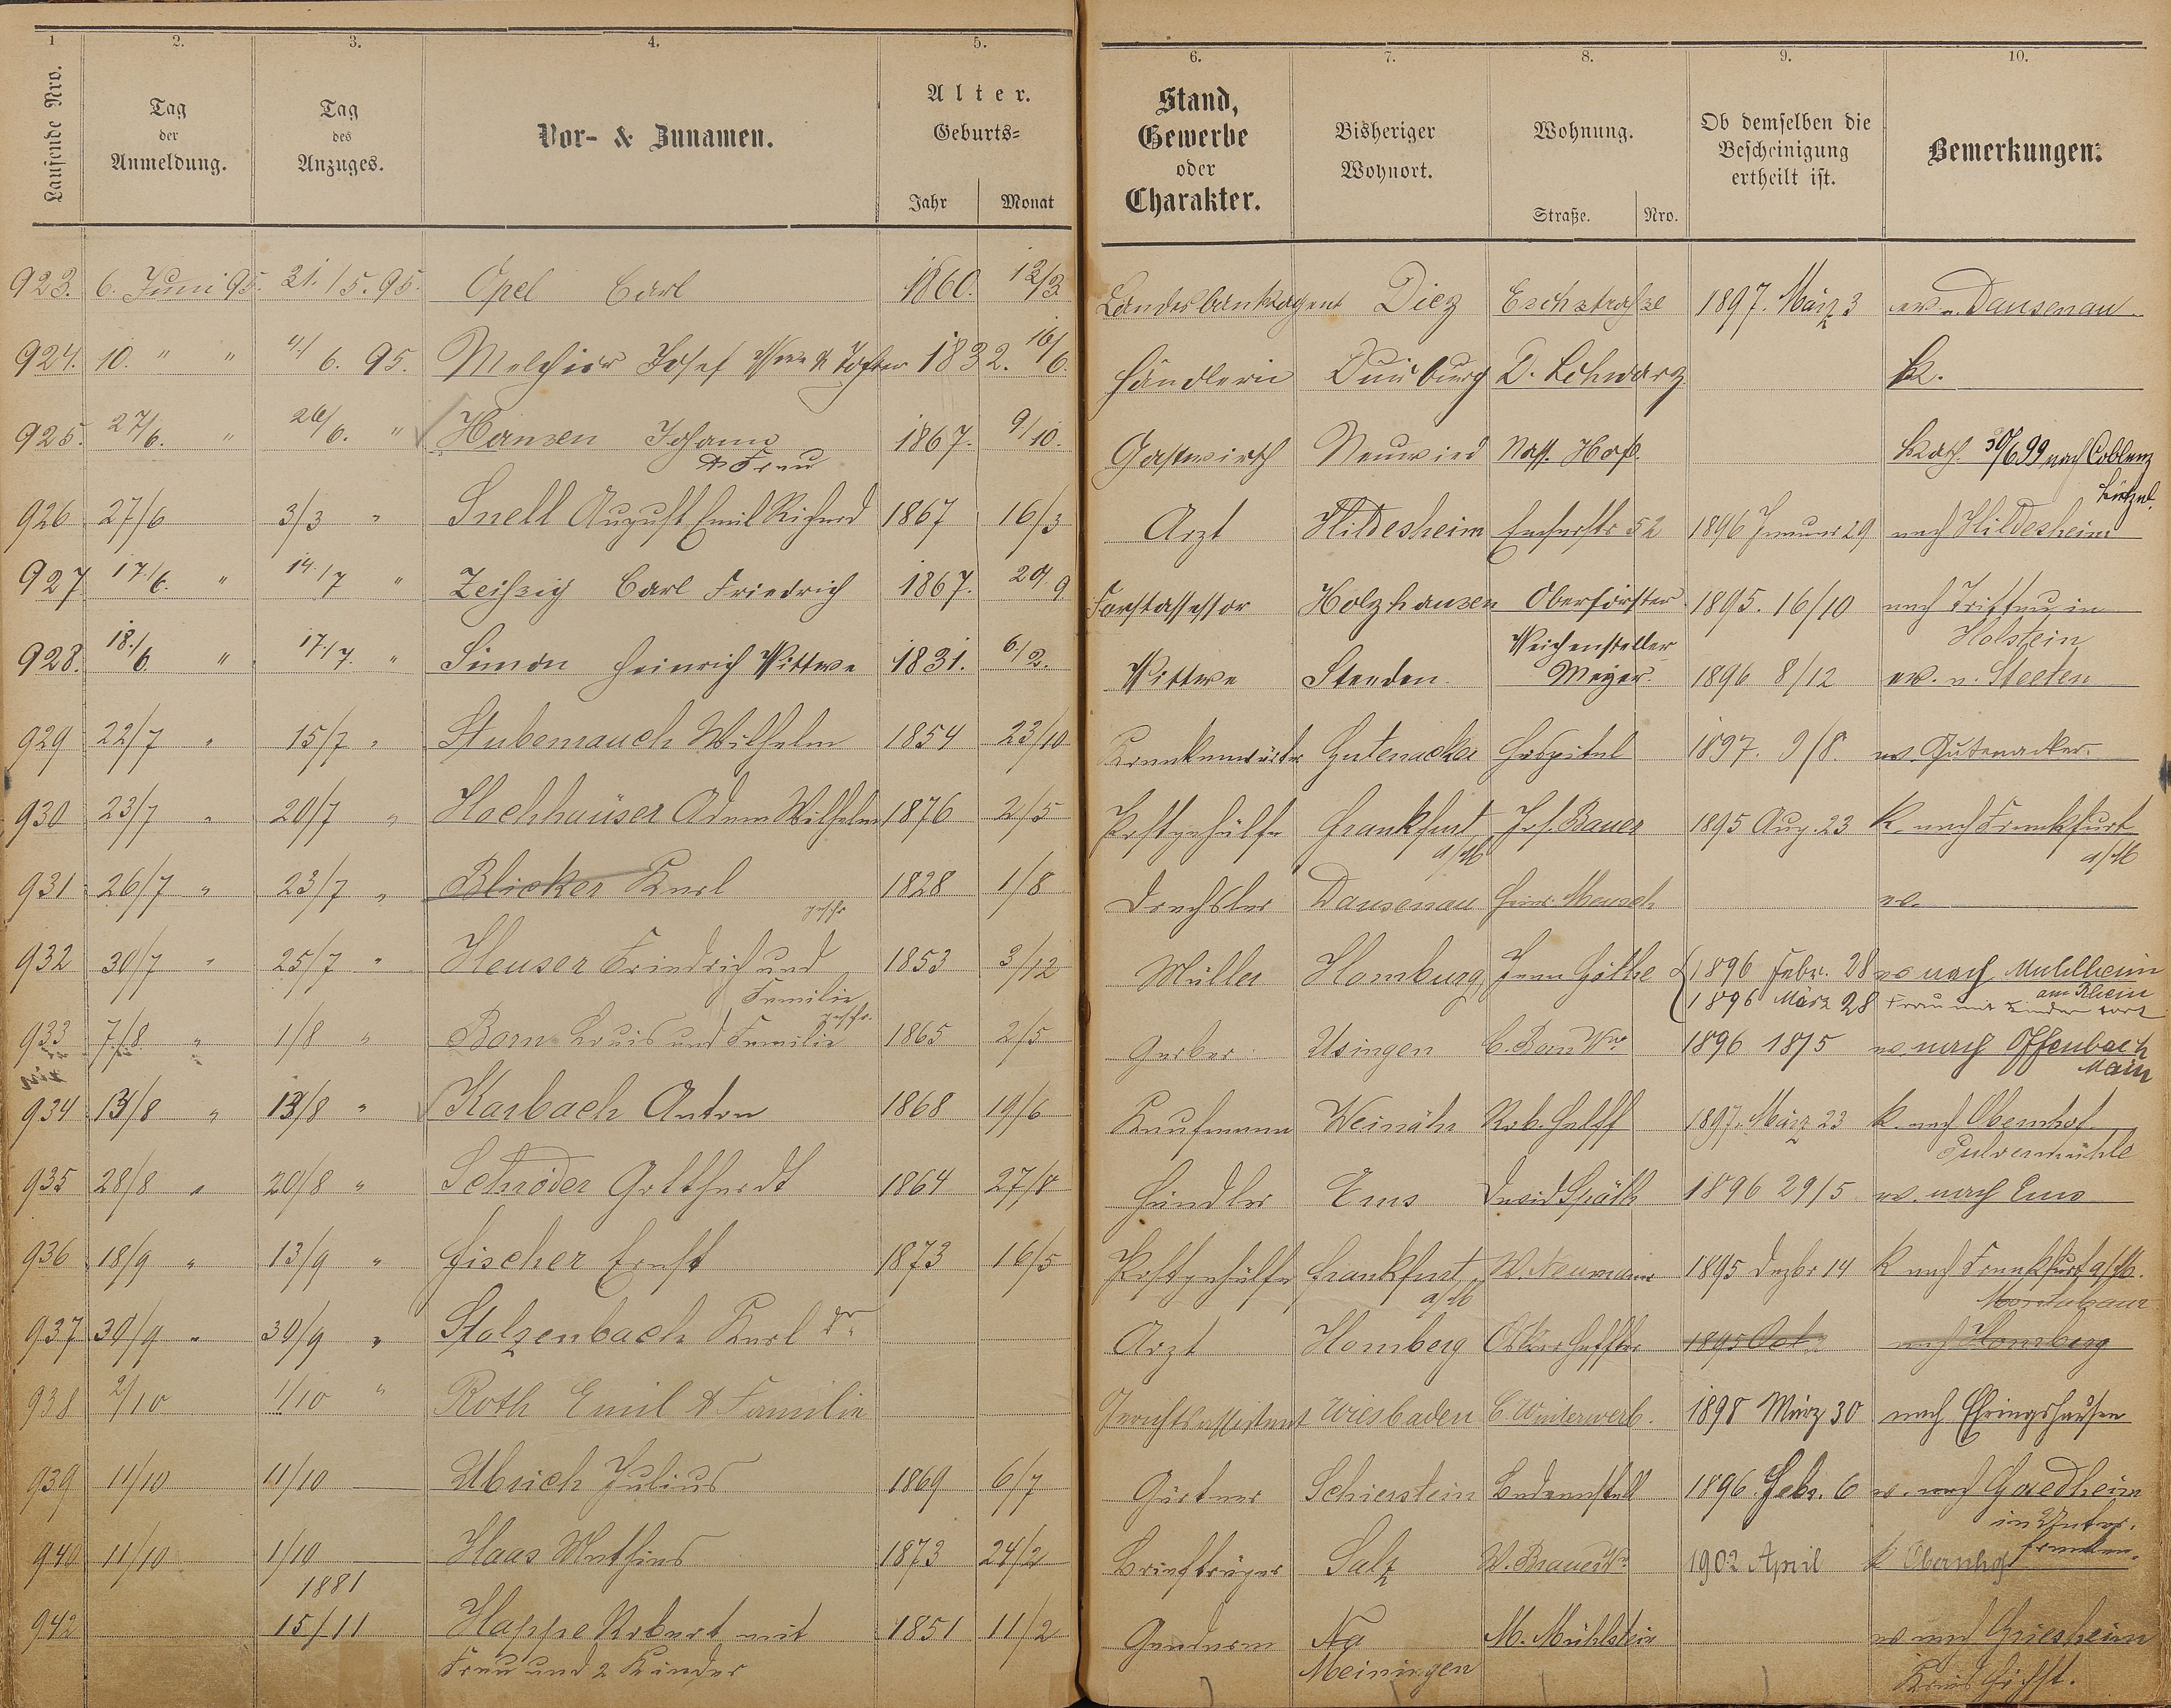 1 2. 3. 4. 5. 6. 7. 8. 9. 10.
Laufende Nro. Tag der Anmeldung. Tag des Anzuges. Vor- & Zunamen. Alter. Geburts= Jahr Monat Stand, Gewerbe oder Charakter. Bisheriger Wohnort. Wohnung. Straße. Nro. Ob demselben die Bescheinigung ertheilt ist. Bemerkungen.
923. 6. Juni 95. 31./5. 95. Opel Carl 1860. 12/3 Landesbankagent Diez Eschstraße 1897. März 3 ev. n. Dausenau
924. 10. " " 4/6. 95. Melchior Josef Wwe & Tochter 1832. 16/6. Händlerin Duisburg D. Schwarz k.
925. 27/6. " 26/6. " Hansen Johann 1867. 9/10. Gastwirth Neuwied Nass. Hof. Kath. 30/6 99 nach Coblenz
& Frau Lützel.
926 27/6 3/3 " Snell August Emil Richard 1867 16/3 Arzt Hildesheim Emserstr 52 1896 Januar 29 nach Hildesheim
927 17/6. " 14./7 " Zeißig Carl Friedrich 1867. 29/9 Forstassessor Holzhausen Oberförster 1895. 16/10 nach Trittau in
Holstein
928. 18./6. " 17./7. " Simon Heinrich Wittwe 1831. 6/2. Wittwe Steeden. Weichensteller Meyer. 1896 8/12 ev. n. Steeten
929 22/7 " 15/7 " Stubenrauch Wilhelm 1854 23/10 Krankenwärter Gutenacker Hospital 1897. 9/8. ev. Gutenacker.
930 23/7 " 20/7 " Hochhäuser Adam Wilhelm 1876 2/5 Postgehülfe Frankfurt a/M Jos. Bauer 1895 Aug. 23 k. nach Frankfurt
a/M
931 26/7 " 23/7 " Blicker Karl 1828 1/8 Drechsler Dausenau Heinr. Mensch ev.
932 30/7 " 25/7 " Heuser Friedrich und 1853 3/12 Müller Homburg 1896 Febr. 28 ev nach Mühlheim
Familie 1896 März 28 am Rhein Frau mit Kinder fort
933 7/8 " 1/8 " Born Louis und Familie 1865 2/5 Gerber Usingen C. Born Wwe 1896 18/5 ev. nach Offenbach
Main
934 13/8 " 13/8 " Karbach Anton 1868 19/6 Kaufmann Weinähr Rob. Helff 1897. März 23 k. nach Obernhof
Pulvermühle
935 28/8 " 20/8 " Schröder Gotthardt 1864 27/8 Händler Ems David Späth 1896 29/5 ev. nach Ems
936 18/9 " 13/9 " Fischer Ernst 1873 16/5 Postgehülfe Frankfurt a/M W. Neumann 1895 Dezbr 14 k nach Frankfurt a/M.
Montabaur
937 30/9 " 30/9 " Stolzenbach Karl Dr. Arzt Homberg 1895 Oct. nach Homberg
938 2/10 1/10 " Roth Emil & Familie Gerichtsassistent Wiesbaden C Winterwerb. 1898 März 30 nach Ehringshausen
939 11/10 11/10 Ulrich Julius 1869 6/7 Gärtner Schierstein Badeanstalt 1896 Febr. 6 ev. nach
in Unter-
franken.
940 11/10 1/10 Haas Mathias 1873 24/2 Briefträger Salz W. Brauer Wr. 1902 April k Obernhof
1881
942 15/11 Happe Robert mit 1851 11/2 Gendarm Na M. Mühlstein ev nach Griesheim
Frau und 2 Kinder Meiningen Kreis Höchst.